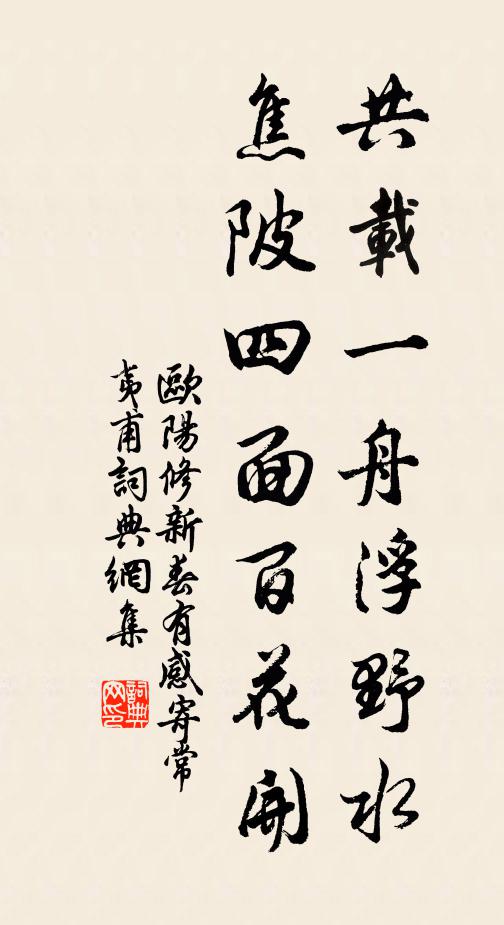 共載一舟浮野水
焦陂四面百花開
歐陽修新春有感寄常
夷甫詞典網集
詞典
网印